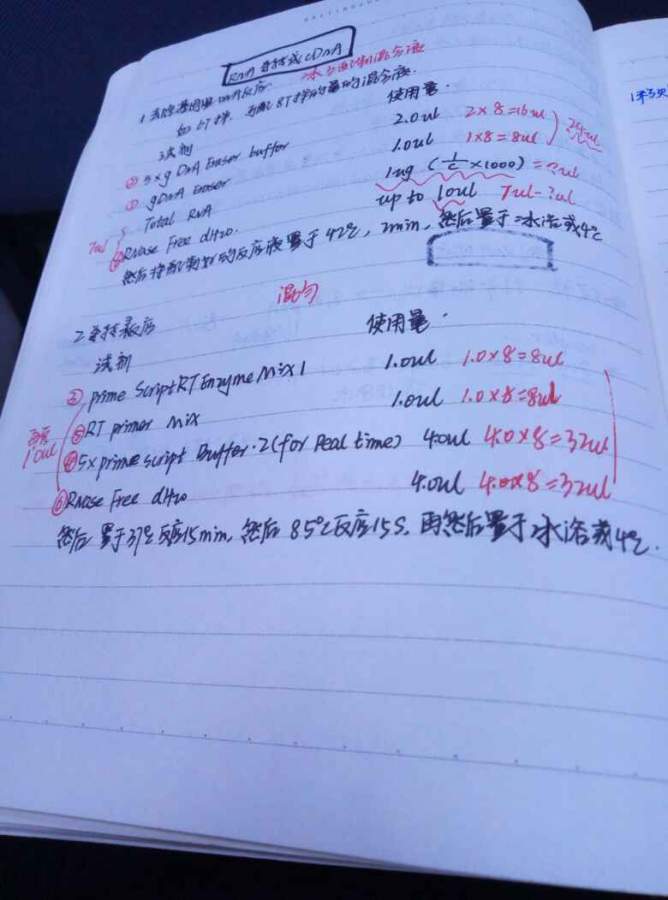 RNA 逆转录成cDNA 冰上配制混合液
1 去除基因组DNA反应
如 6T样, 8T样的量的混合液.
试剂 使用量.
② 5×g DNA Eraser buffer 2.0ul 2×8=16ul 24ul
① gDNA Eraser 1.0ul 1×8=8ul
7ul Total RNA 1ug (1/C ×1000) =?ul
RNase Free dH2O. up to 10ul 7ul-?ul
然后将配制好的反应液置于42℃, 2min, 然后置于冰浴或4℃
混匀
2 逆转录反应
试剂 使用量.
② prime ScriptRT Enzyme Mix 1 1.0ul 1.0×8=8ul
③RT primer Mix 1.0ul 1.0×8=8ul
10ul ④5×primescript Buffer·2(for Real time) 4.0ul 4.0×8=32ul
⑥RNase Free dH2O 4.0ul 4.0×8=32ul
然后置于37℃反应15min, 然后85℃反应15S, 再然后置于冰浴或4℃.